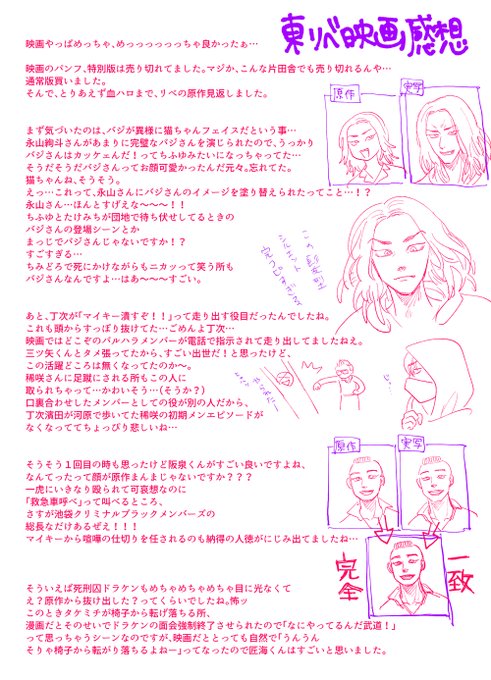 東リベ映画感想
映画やっぱめっちゃ、めっっっっっっちゃ良かったぁ…
映画のパンフ、特別版は売り切れてました。マジか、こんな片田舎でも売り切れるんや…
通常版買いました。
そんで、とりあえず血ハロまで、リベの原作見返しました。
原作
実写
まず気づいたのは、バジが異様に猫ちゃんフェイスだという事…
永山絢斗さんがあまりに完璧なバジさんを演じられたので、うっかり
バジさんはカッケェんだ!ってちふゆみたいになっちゃってた…
そうだそうだバジさんってお顔可愛かったんだ元々。忘れてた。
猫ちゃんね、そうそう。
えっ…これって、永山さんにバジさんのイメージを塗り替えられたってこと…!?
永山さん…ほんとすげえな〜〜〜!!
ちふゆとたけみちが団地で待ち伏せしてるときの
バジさんの登場シーンとか
まっじでバジさんじゃないですか!?
すごすぎる…
ちみどろで死にかけながらもニカッって笑う所も
バジさんなんですよ…はあ〜〜〜すごい。
あと、丁次が「マイキー潰すぞ!!」って走り出す役目だったんでしたね。
これも頭からすっぽり抜けてた…ごめんよ丁次…
映画ではどこぞのバルハラメンバーが電話で指示されて走り出してましたねぇ。
三ツ矢くんとタメ張ってたから、すごい出世だ!と思ったけど、
この活躍どころは無くなってたのか〜。
稀咲さんに足蹴にされる所もこの人に
取られちゃって…かわいそう…(そうか?)
口裏合わせしたメンバーとしての役が別の人だから、
丁次濱田が河原で歩いてた稀咲の初期メンエピソードが
なくなっててちょっぴり悲しいね…
原作
実写
そうそう1回目の時も思ったけど阪泉くんがすごい良いですよね、
なんてったって顔が原作まんまじゃないですか???
一虎にいきなり殴られて可哀想なのに
「救急車呼べ」って叫べるところ、
さすが池袋クリミナルブラックメンバーズの
総長なだけあるぜえ!!!
マイキーから喧嘩の仕切りを任されるのも納得の人徳がにじみ出てましたね…
完全
一致
そういえば死刑囚ドラケンもめちゃめちゃめちゃ目に光なくて
え?原作から抜け出した?ってくらいでしたね。怖ッ
このときタケミチが椅子から転げ落ちる所、
漫画だとそのせいでドラケンの面会強制終了させられたので「なにやってるんだ武道!」
って思っちゃうシーンなのですが、映画だととっても自然で「うんうん
そりゃ椅子から転がり落ちるよねー」ってなったので匠海くんはすごいと思いました。